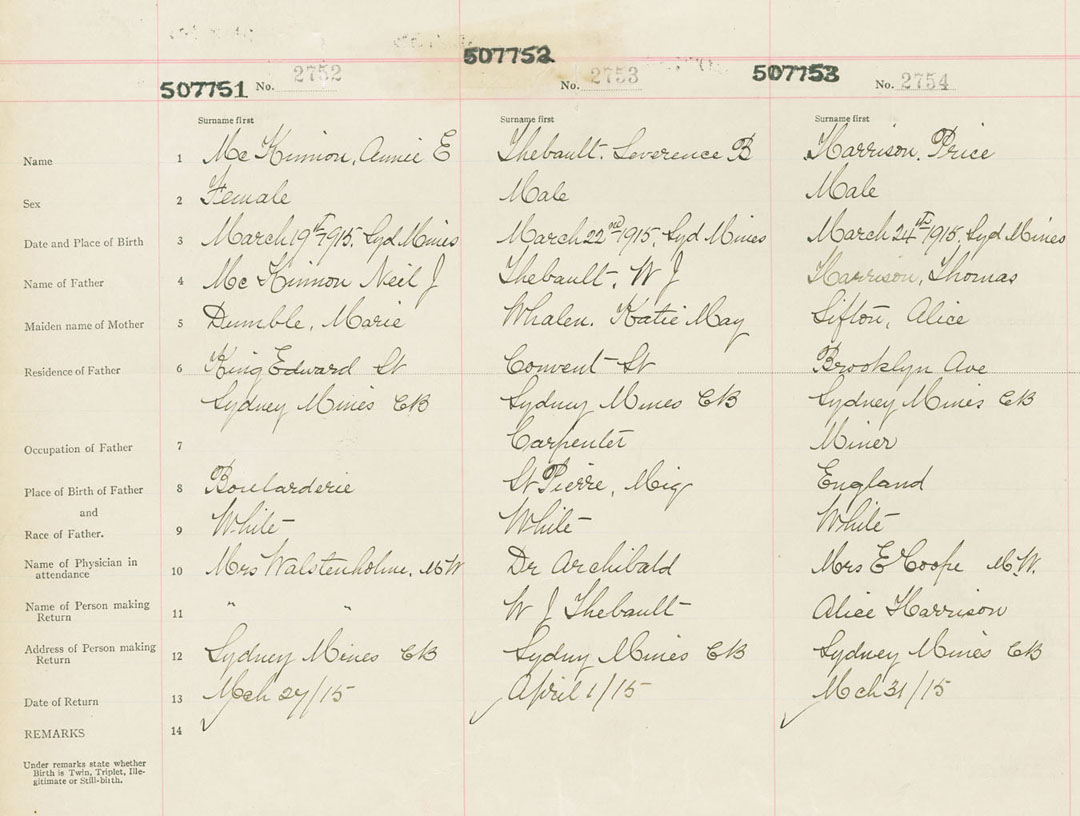 507751 No. 2752 507752 No. 2753 507753 No. 2754
Surname first Surname first Surname first
Name 1 Mc Kinnon, Annie E Thebault. Leverence B Harrison. Price
Sex 2 Female Male Male
Date and Place of Birth 3 March 19th 1915. Syd Mines March 22nd 1915. Syd Mines March 24th 1915. Syd Mines
Name of Father 4 Mc Kinnon Neil J Thebault. W J Harrison, Thomas
Maiden name of Mother 5 Dumble, Marie Whalen. Katie May Sifton, Alice
Residence of Father 6 King Edward St Convent St Brooklyn Ave
Sydney Mines CB Sydney Mines CB Sydney Mines CB
Occupation of Father 7 Carpenter Miner
Place of Birth of Father 8 Boularderie St Pierre, Miq England
and
Race of Father. 9 White White White
Name of Physician in
attendance 10 Mrs Walstenholme, MW Dr Archibald Mrs E Coope M.W.
Name of Person making
Return 11 " " W J Thebault Alice Harrison
Address of Person making
Return 12 Sydney Mines CB Sydny Mines CB Sydney Mines CB
Date of Return 13 Mch 27/15 April 1/15 Mch 31/15
REMARKS 14
Under remarks state whether
Birth is Twin, Triplet, Ille-
gitimate or Still-birth.